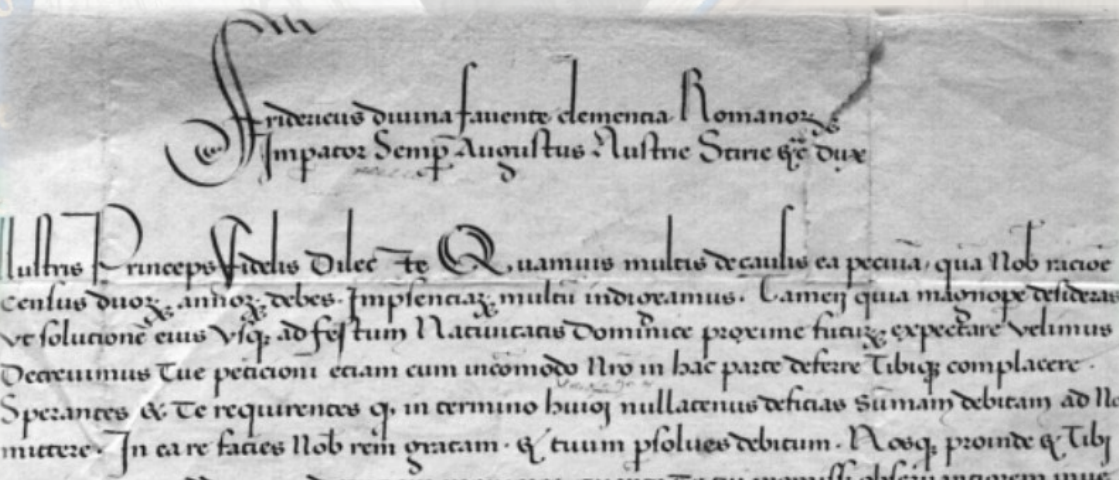 Fridericus divina favente clementia Romanoꝝ
Impator Semp Augustus Austrie Stirie ꝛc̄ dux
Illustris Princeps fidelis Dilecte Quamvis multis de causis ea pecunia, qua Nob racioē
census duoꝝ annoꝝ debes. Impsenciaꝝ multū indigeamus. Tamen quia magnope desideras
ut solutionē eius usqꝫ ad festum Nativitatis Dominice proxime futuꝝ expectare velimus
Decrevimus Tue peticioni eciam cum incōmodo Nrō in hac parte deferre Tibiqꝫ complacere.
Sperantes & Te requirentes qꝫ in termino huiꝰ nullatenus deficias Sūmam debitam ad No
mittere. In ea re facies Nob rem gratam. & tuum psolves debitum. Nosqꝫ proinde & Tibi